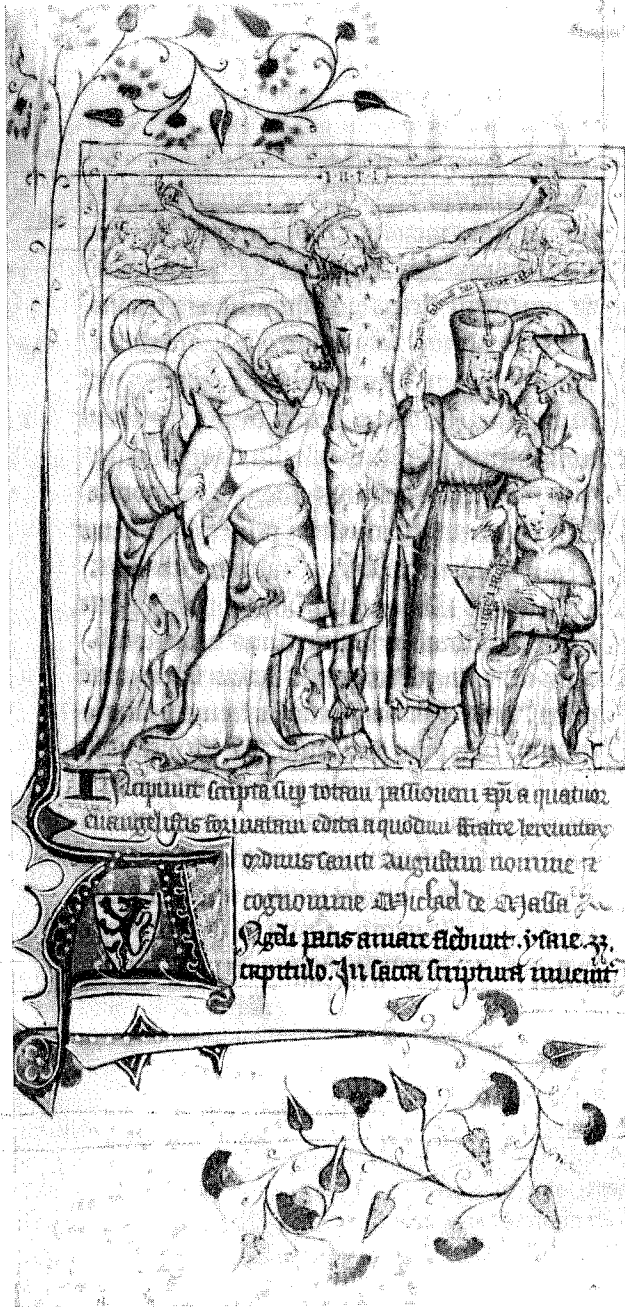 I n r i
Incipiunt scripta sup totam passionem xpi a quatuor
euangelistis formatam edita a quodam fratre heremitar
ordinis sancti Augustini nomine et
cognomine Michael de Massa
Angeli pacis amare flebunt. ysaie. 33.
capitulo. In sacra scriptura inuenit